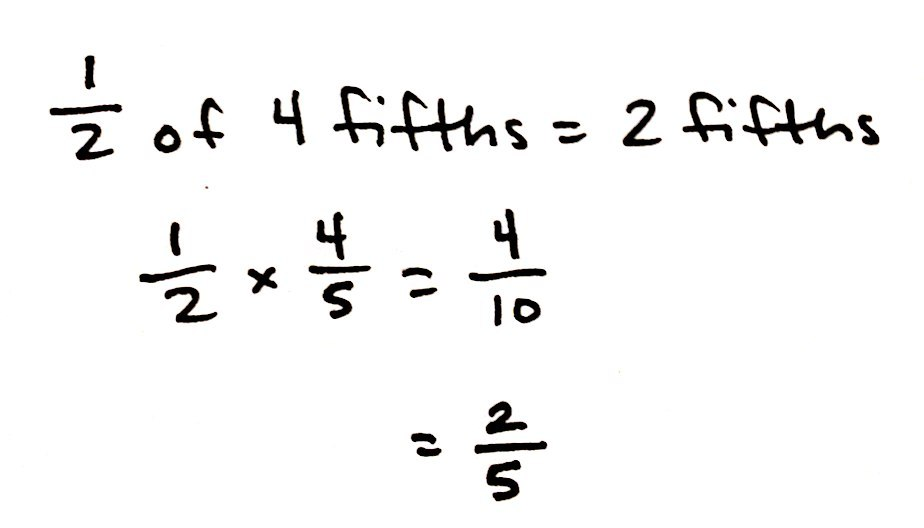 1/2 of 4 fifths = 2 fifths
1/2 × 4/5 = 4/10
= 2/5